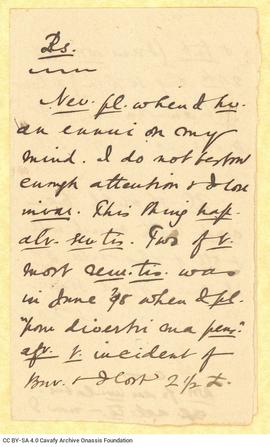 Ds.
Nev. pl. when I hv.
an ennui on my
mind. I do not bestow
enough attention & I lose
invar. This thing hap.
alr. sev. tis. Two of t.
most rem. tis. was
in June '98 when I pl.
"pour divertir ma pens."
aft. t. incident of
& I lost 2 1/2 £.
CC BY-SA 4.0 Cavafy Archive Onassis Foundation